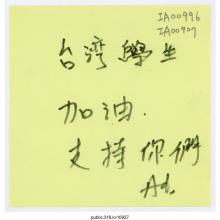 IA00996
IA00907
台湾學生
加油.
支持你們
public.318.io/10927